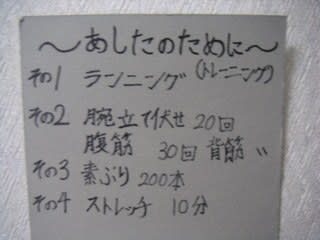 ～あしたのために～
その1 ランニング(トレーニング)
その2 腕立て伏せ 20回
腹筋 30回 背筋 〃
その3 素ぶり 200本
その4 ストレッチ 10分